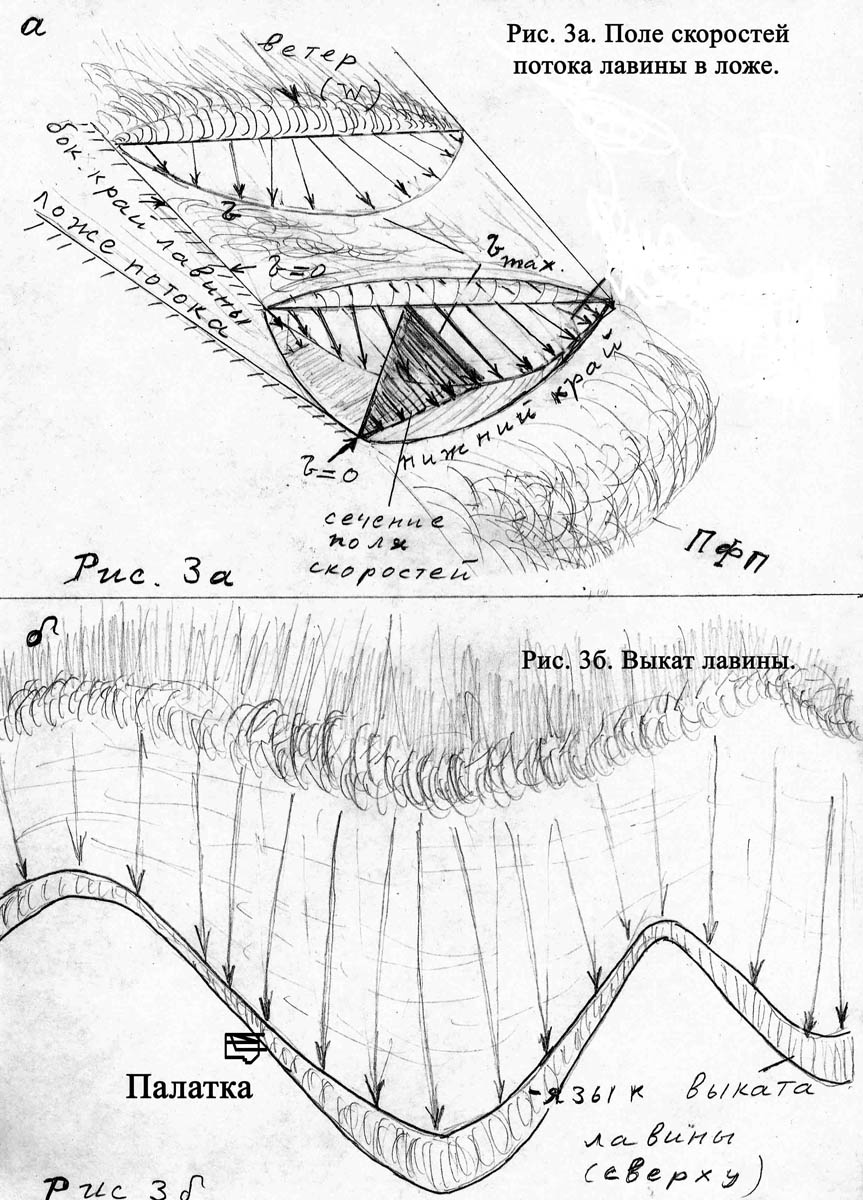 а
Рис. 3а. Поле скоростей
потока лавины в ложе.
ветер
(W)
бок. край лавины
ложе потока
v
v=0
v max.
нижний край
v=0
сечение
поля
скоростей
ПФП
Рис. 3а
б
Рис. 3б. Выкат лавины.
Палатка
-язык выката
лавины
(сверху)
Рис 3б